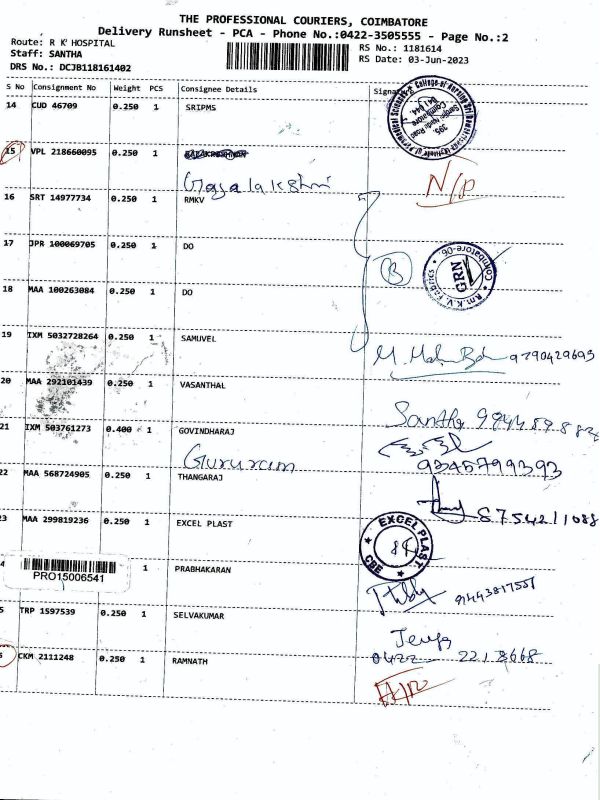 THE PROFESSIONAL COURIERS, COIMBATORE
Delivery Runsheet - PCA - Phone No.:0422-3505555 - Page No.:2
Route: R K HOSPITAL
Staff: SANTHA
DRS No.: DCJB118161402
RS No.: 1181614
RS Date: 03-Jun-2023
S No Consignment No Weight PCS Consignee Details Signat
14 CUD 46709 0.250 1 SRIPMS
15 VPL 218660095 0.250 1
N/P
16 SRT 14977734 0.250 1 RMKV
17 JPR 100069705 0.250 1 DO
B
R.M.K.V. Fabrics Coimbatore-06. GRN
18 MAA 100263084 0.250 1 DO
19 IXM 5032728264 0.250 1 SAMUVEL
9790429695
20 MAA 292101439 0.250 1 VASANTHAL
Santha
21 IXM 503761273 0.400 1 GOVINDHARAJ
Gururam
9345799393
22 MAA 568724905 0.250 1 THANGARAJ
8754211088
23 MAA 299819236 0.250 1 EXCEL PLAST
EXCEL PLAST CBE
4 1 PRABHAKARAN
PRO15006541
9443817551
5 TRP 1597539 0.250 1 SELVAKUMAR
0422 2218668
6 CKM 2111248 0.250 1 RAMNATH